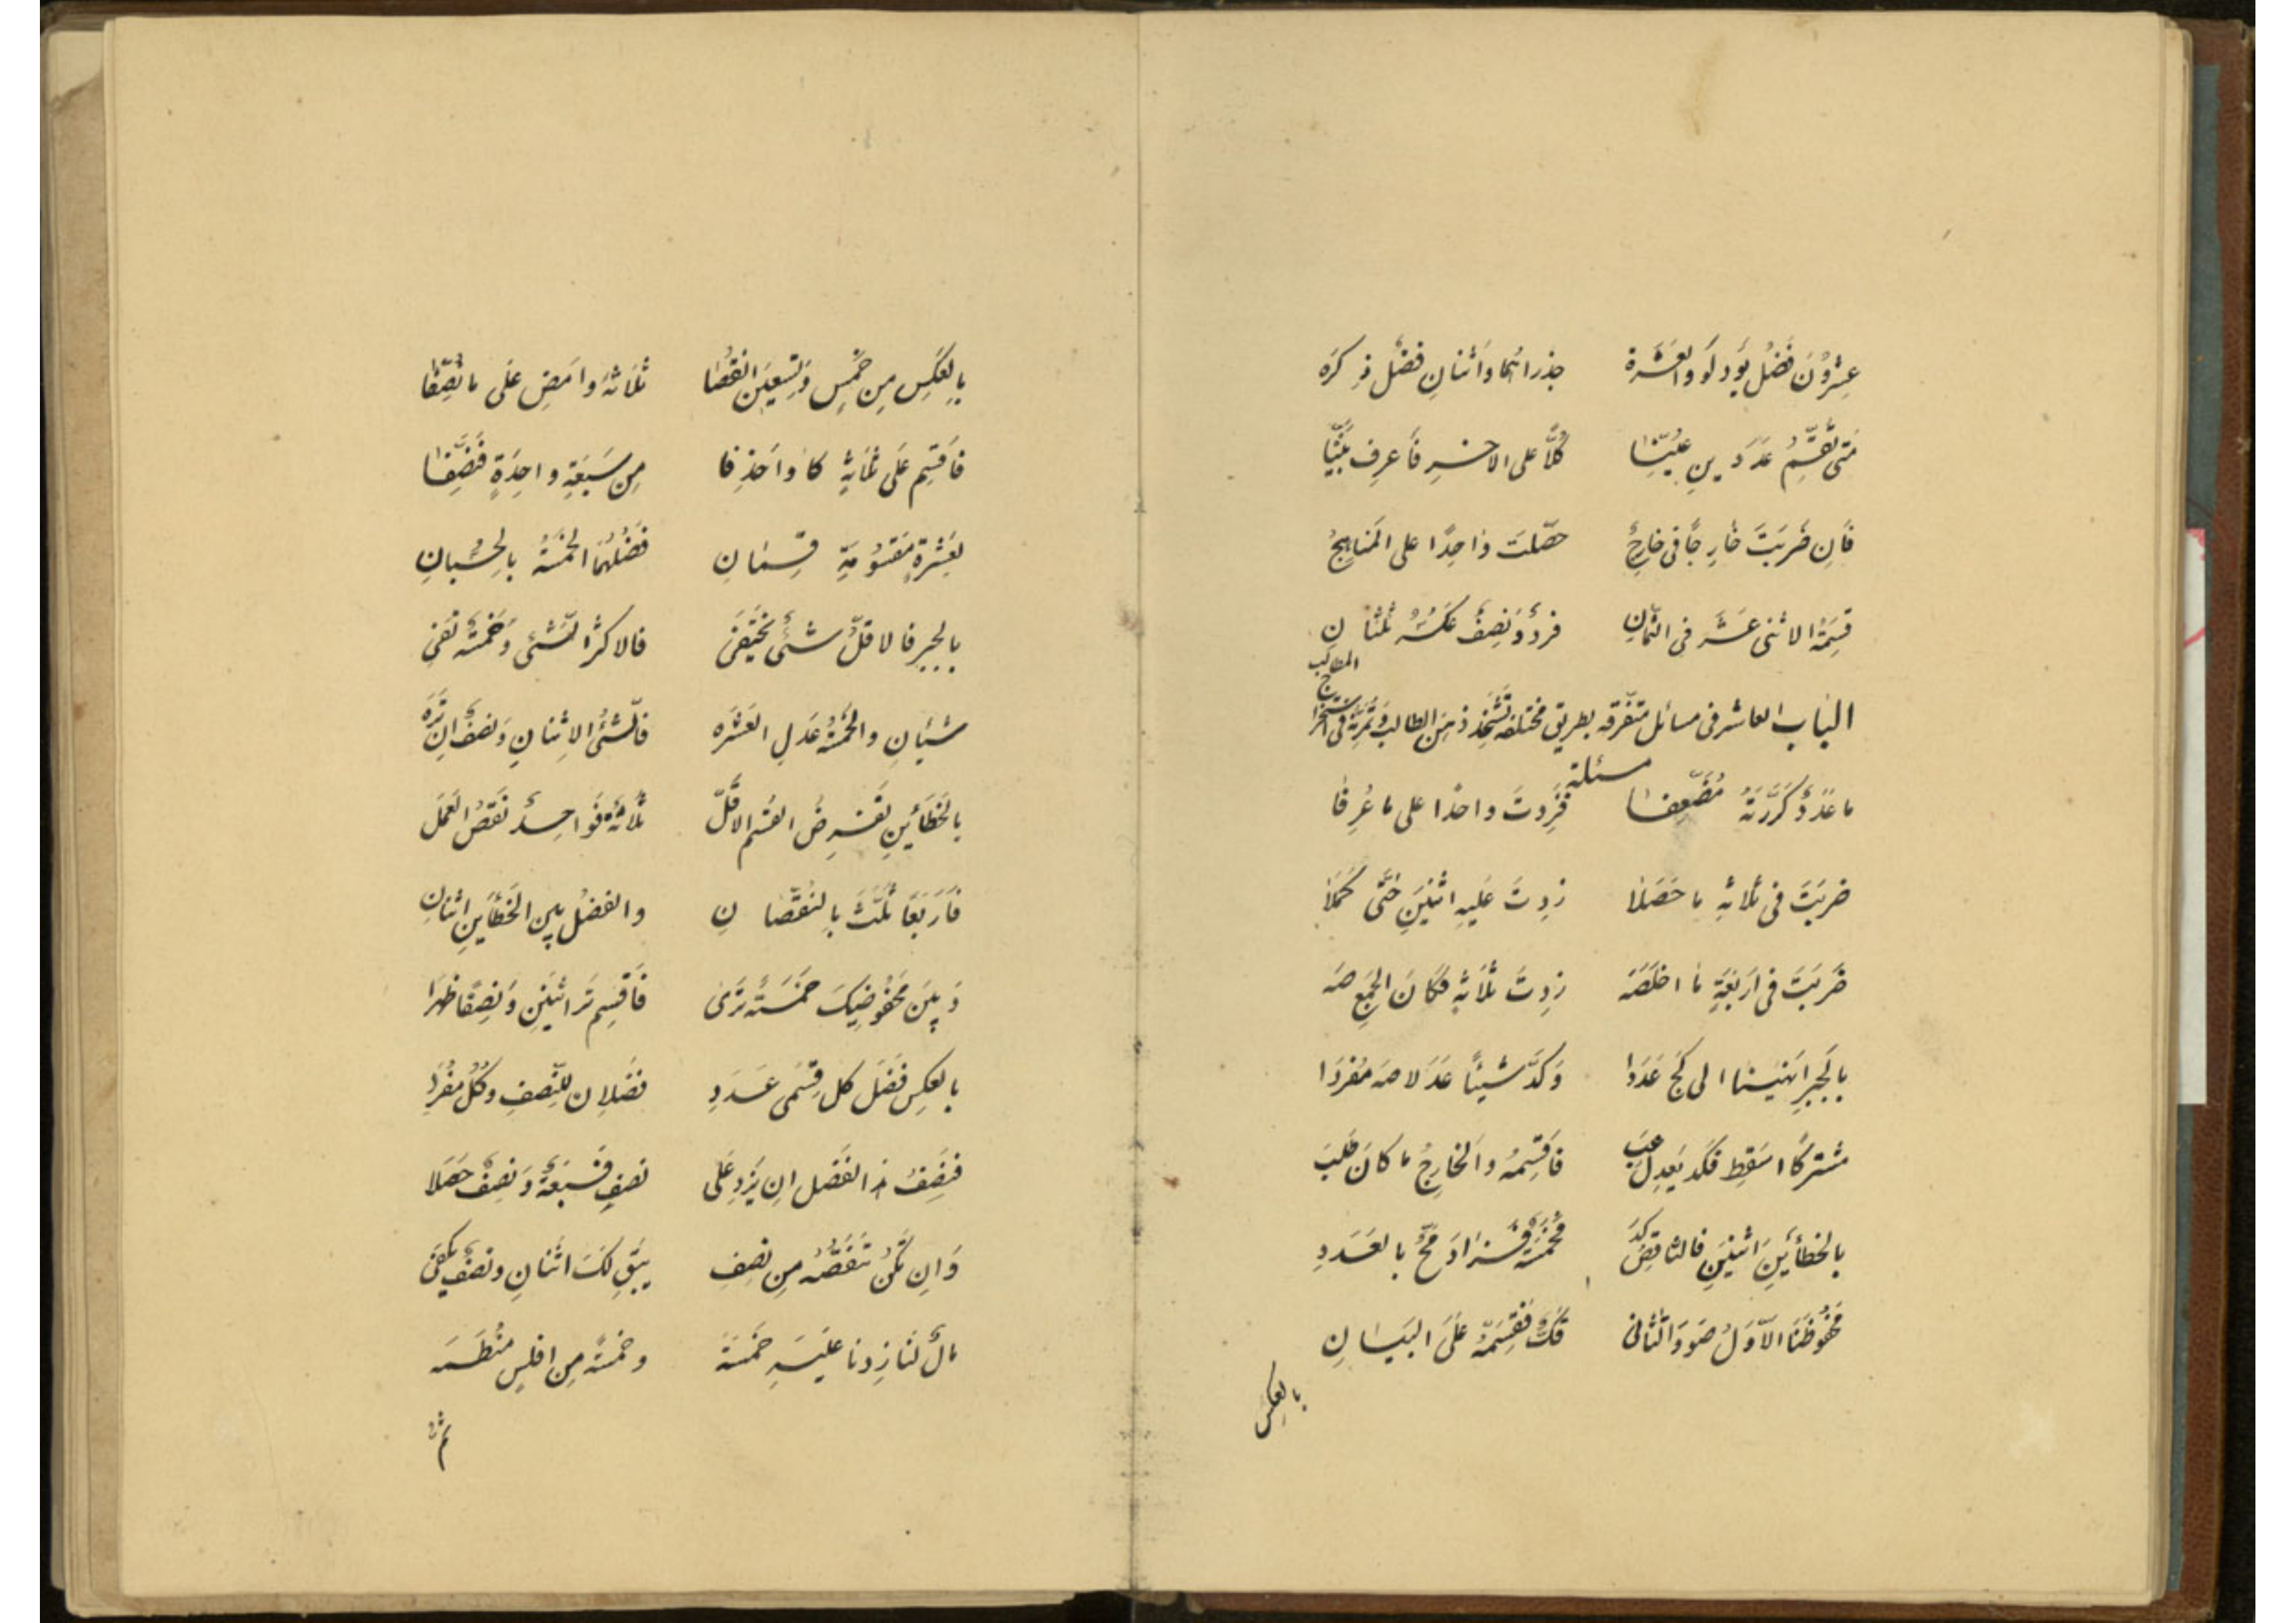 عِشرُونَ فَضلُ يَو دلَو والعَشَرة جذراهُما واثنانِ فضلٌ ذكَرَه
مَتى تُقَسِّمُ عَدَدَينِ عُيِّنا كُلًّا على الاخرِ فَاعرِف بَيِّنا
فَاِن ضَرَبتَ خارِجًا فى خارِجٍ حصّلتَ واحِدًا على المَناهِجِ
قِسمَةُ الاثنى عَشَر فى الثمانِ فردٌ وَنِصفٌ عَكسُهُ ثُلثانِ
الباب العاشر فى مسائل متفّرقه بطريق مختلفه تشحّذ ذهنَ الطالب وتُمَرِّنهُ فى استخراج المطالب
مسئلة
ما عَدَدٌ كَرَّرتَهُ مُضَعِّفا فَزِدتَ واحدًا على ما عُرِفا
ضربتَ فى ثلاثةٍ ما حَصَلا زِدتَ عَليهِ اثنَينِ حَتّى كَمَلا
ضَرَبتَ فى اَربَعَةٍ ما اخلَصَه زِدتَ ثَلاثَةً فكانَ الجَمع صَه
بِالجَبرِ اَنهَينا الى كَج عَدَدا وَكدَ شيئًا عَدَلا صَه مُفرَدا
مشتركًا اسقِط فكد يَعدِلُ عب فَاقسِمهُ والخارِجُ ما كانَ طَلَب
بالخطأَينِ اثنَينِ فالنّاقِصُ كَد فَخَمسَةٌ فزادَ مَحٌ بالعَدَدِ
مَحفُوظُنَا الاَوّلُ صَو وَالثّانى قَك فَقِسمَةٌ عَلَى البَيانِ
بالعكس
بِالعَكسِ مِن خَمسٍ وَتِسعينَ انقُصا ثَلاثَةً وامضِ عَلى ما نُصِّفا
فَاقسِم عَلى ثَمانيةٍ كا واحذِفا مِن سَبعَةٍ واحِدَةٍ فَنَصِّفا
لِعَشرةٍ مَقسُومَةٍ قِسمانِ فَضلُهُما الخَمسَةُ بالحُسبانِ
بالجبر فالاقلّ شئٌ يختَفى فالاكثر الشئى وَخمسَةٌ تَفى
شيئانِ والخَمسَةُ عَدلِ العَشَره فالشّئُ الاثنانِ وَنصفٌ ان تَرَه
بالخَطأَينِ تَفرِضُ القسمَ الاقَلّ ثَلاثَةً فَواحِدٌ نَقصُ العَمَل
فَاَربَعًا ثَلَّثَ بِالنُّقصانِ والفضلُ بين الخَطَأينِ اثنانِ
وَبينَ مَحفُوضَيكَ خَمسَةٌ تَرى فَاقسِم تَر اثنَينِ وَنِصفًا ظهَرا
بالعكسِ فَضل كل قِسمَى عَدَدِ فَضلانِ للنّصفِ وكُلّ مُفرَدِ
فنِصفُ ذا الفَضل اِن يَزِد عَلى نصفٍ فَسَبعَةٌ وَنِصفٌ حَصَلا
وَاِن تكُن تَنقُصُهُ مِن نصِف يَبقى لكَ اثنانِ ونصفٌ يَكفى
مالٌ لَنا زِدنا عَليهِ خَمسَةً وخمسَةٌ مِن افلسٍ منُظَمَه